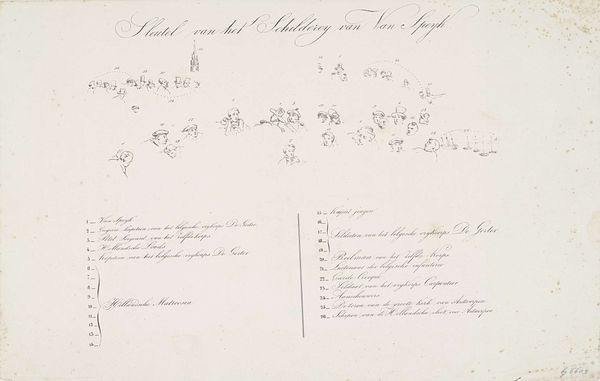 Sleutel van het Schilderey van Van Speyk
1 Van Speyk
2 kapitein van het belgische vrykorps De Gester
3 Sergeant van het zelfde korps
4 Hollandsche Loods
5 Kapitein van het belgische vrykorps De Gester
6
7
8
9
10 Hollandsche Matroosen
11
12
13
14
15 Kajuit jongen
16
17 Soldaten van het belgische vrykorps De Gester
18
19
20 van het zelfde Korps
21 Luitenant der belgische infanterie
22 Garde Civique
23 Soldaat van het vrykorps Carpentier
24 Aanschouwers
25 De toren van de groote kerk van Antwerpen
26 Schepen van de Hollandsche vloot voor Antwerpen